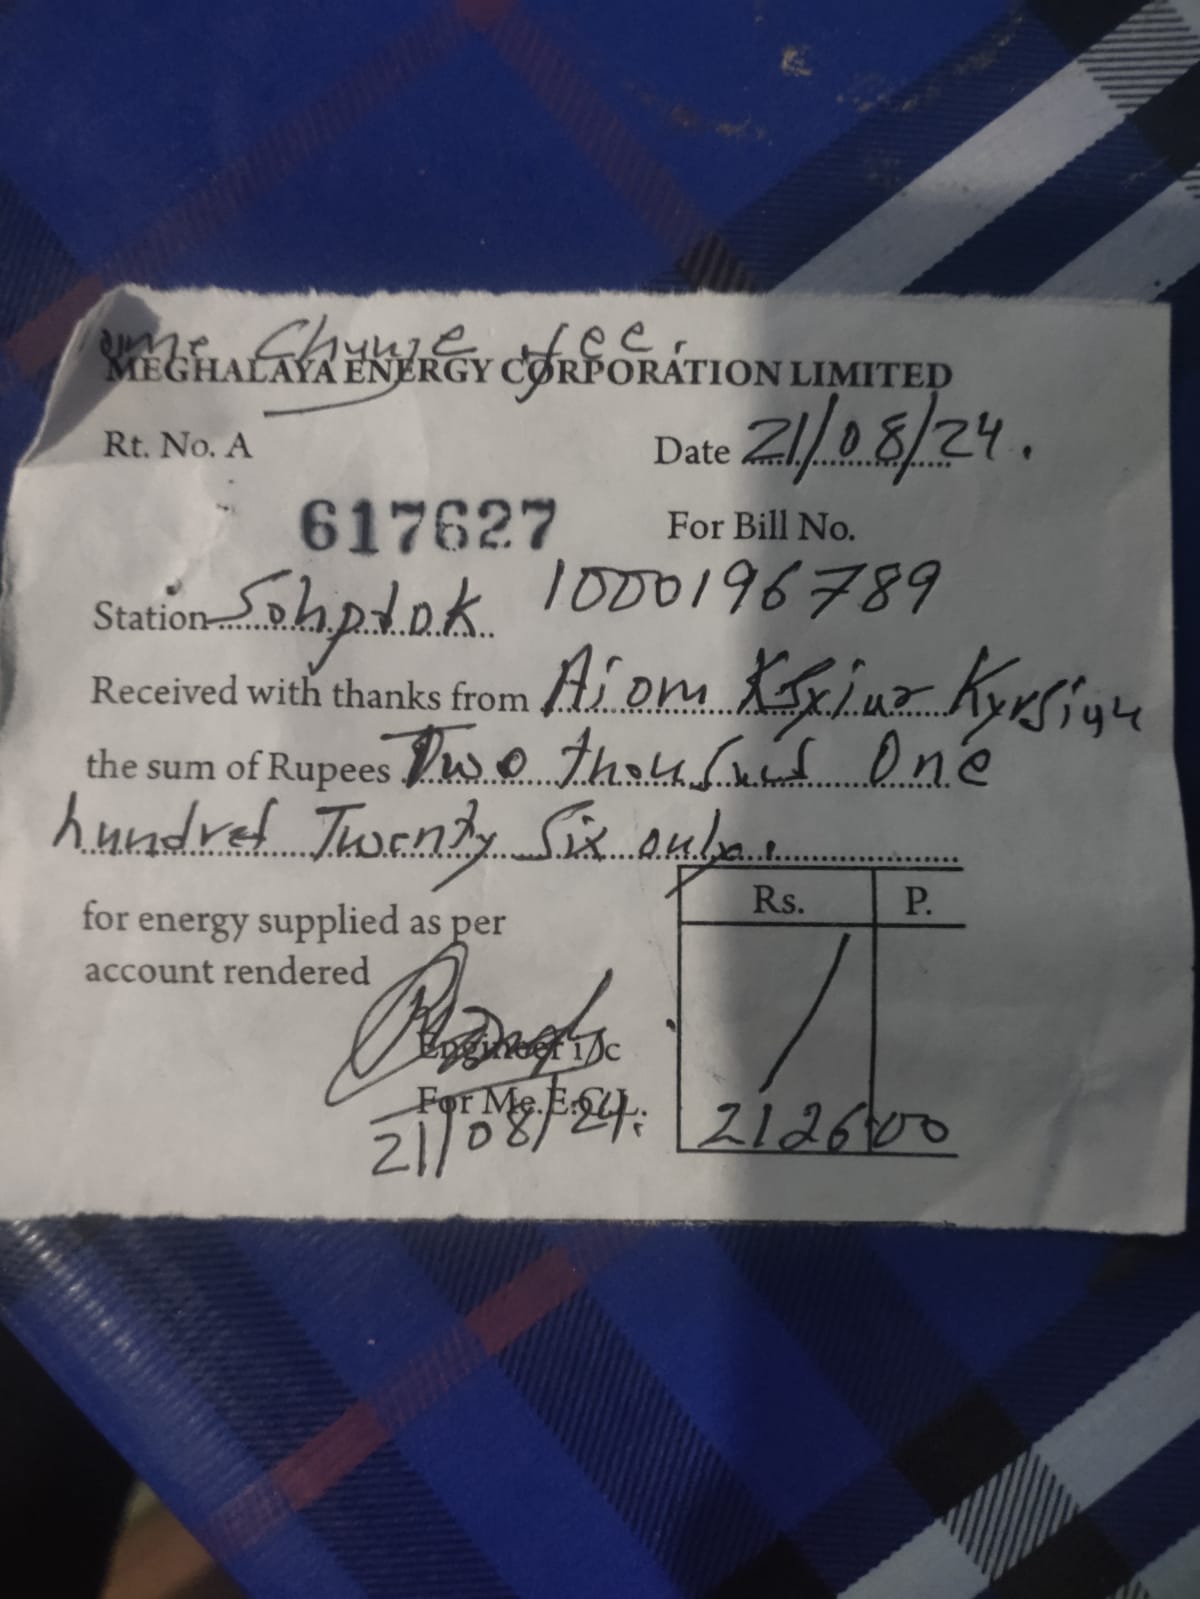 Change fee.
MEGHALAYA ENERGY CORPORATION LIMITED
Rt. No. A Date 21/08/24.
617627 For Bill No.
Station Sohptok 1000196789
Received with thanks from Aiom
the sum of Rupees Two thousand One
hundred Twenty Six only.
for energy supplied as per
account rendered
Rs. P.
Engineer i/c
For Me.E.C.L.
21/08/24.
2126 00